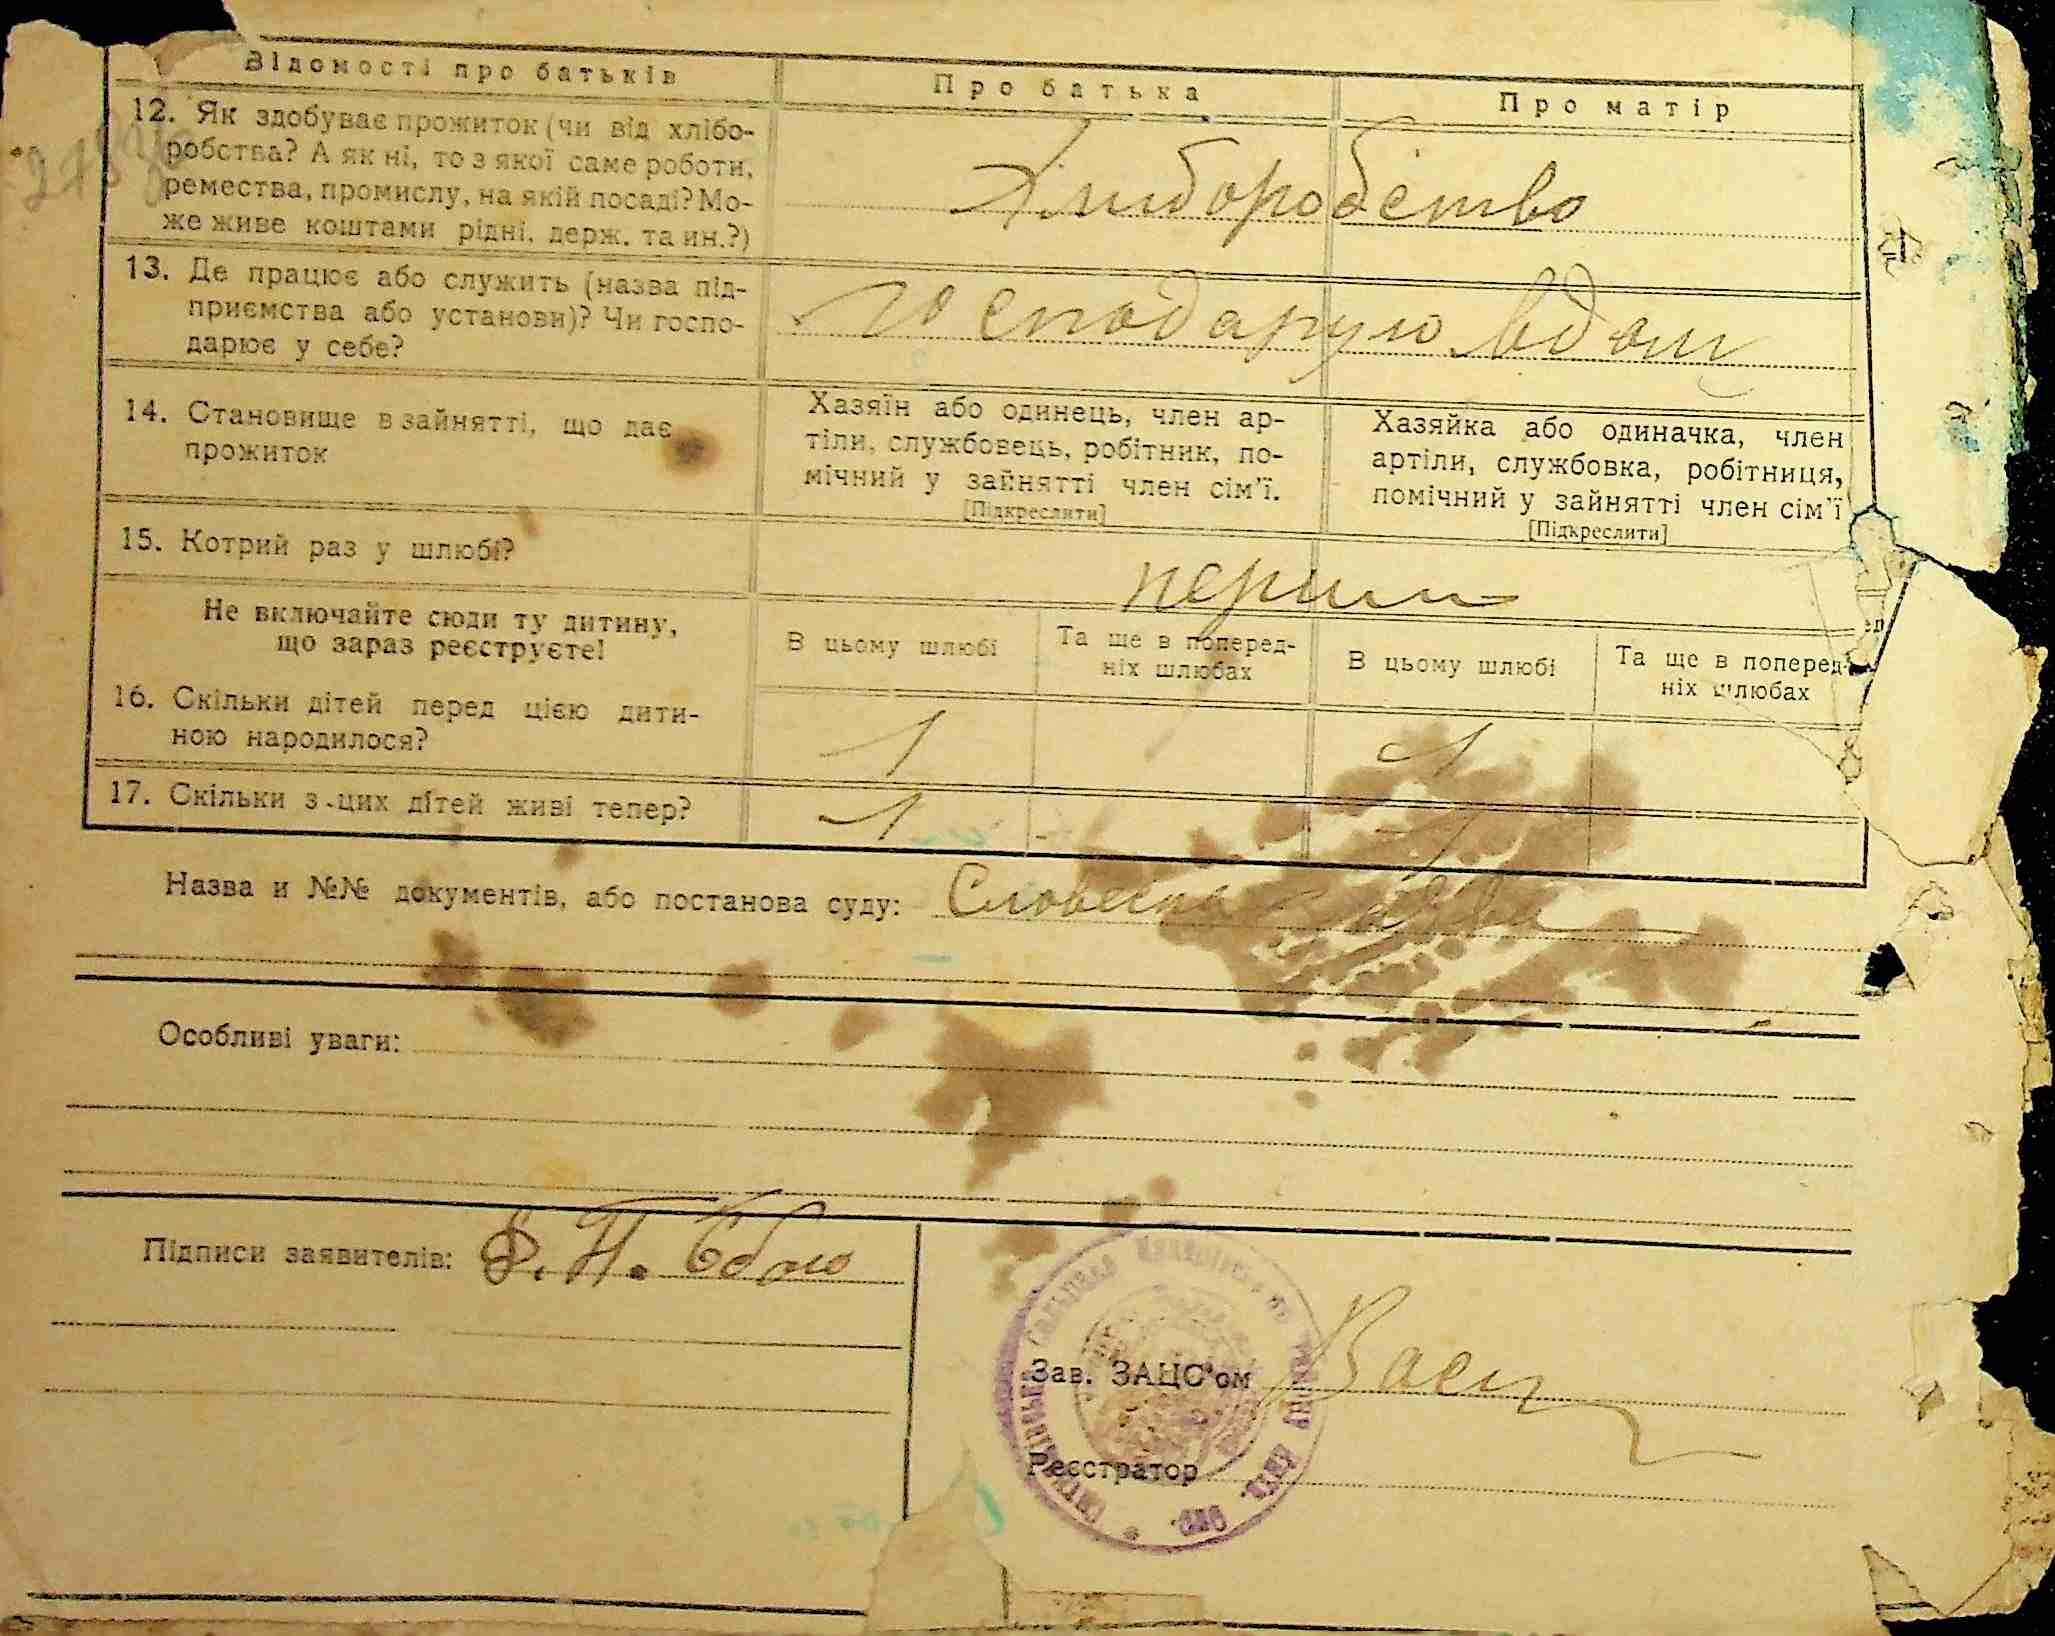 Відомості про батьків
Про батька
Про матір
12. Як здобуває прожиток (чи від хлібо-
робства? А як ні, то з якої саме роботи,
ремества, промислу, на якій посаді? Мо-
же живе коштами рідні, держ. та ин.?)
Хлиборобство
13. Де працює або служить (назва під-
приємства або установи)? Чи госпо-
дарює у себе?
господарую вдома
14. Становище в зайнятті, що дає
прожиток
Хазяїн або одинець, член ар-
тіли, службовець, робітник, по-
мічний у зайнятті член сім'ї.
[Підкреслити]
Хазяйка або одиначка, член
артіли, службовка, робітниця,
помічний у зайнятті член сім'ї
[Підкреслити]
15. Котрий раз у шлюбі?
перший
Не включайте сюди ту дитину,
що зараз реєструєте!
В цьому шлюбі
Та ще в поперед-
ніх шлюбах
В цьому шлюбі
Та ще в поперед-
ніх шлюбах
16. Скільки дітей перед цією дити-
ною народилося?
1
1
17. Скільки з цих дітей живі тепер?
1 -
1
Назва и №№ документів, або постанова суду: Словесна заява
Особливі уваги:
Підписи заявителів: Ф. П.
Зав. ЗАЦС'ом
Реєстратор